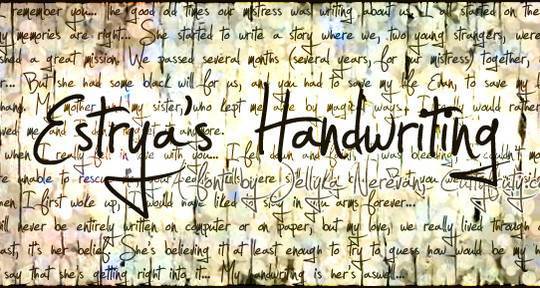 remember you... the good old times our mistress was writing about us. It all started on the
my memories are right... She started to write a story where we, two young strangers, were
shed a great mission. We passed several months (several years, for our mistress) together,
r... But she had some black will for us, and you had to save my life Evan, to save my
mother my sister, who kept me by magical ways. would rather
Estrya's Handwriting
ved me and don't anymore.
when I really fell in love with you... I fell down and was bleeding couldn't
unable to rescue Font by Jellyka Nerevan
hen I first woke up, I would have liked in arms forever...
ill never be entirely written on computer or on paper, but my love, we really lived through
ast, it's her belief. She's believing it at least enough to try to guess how would be my h
say that she's getting right into it... My handwriting is her's aswell...